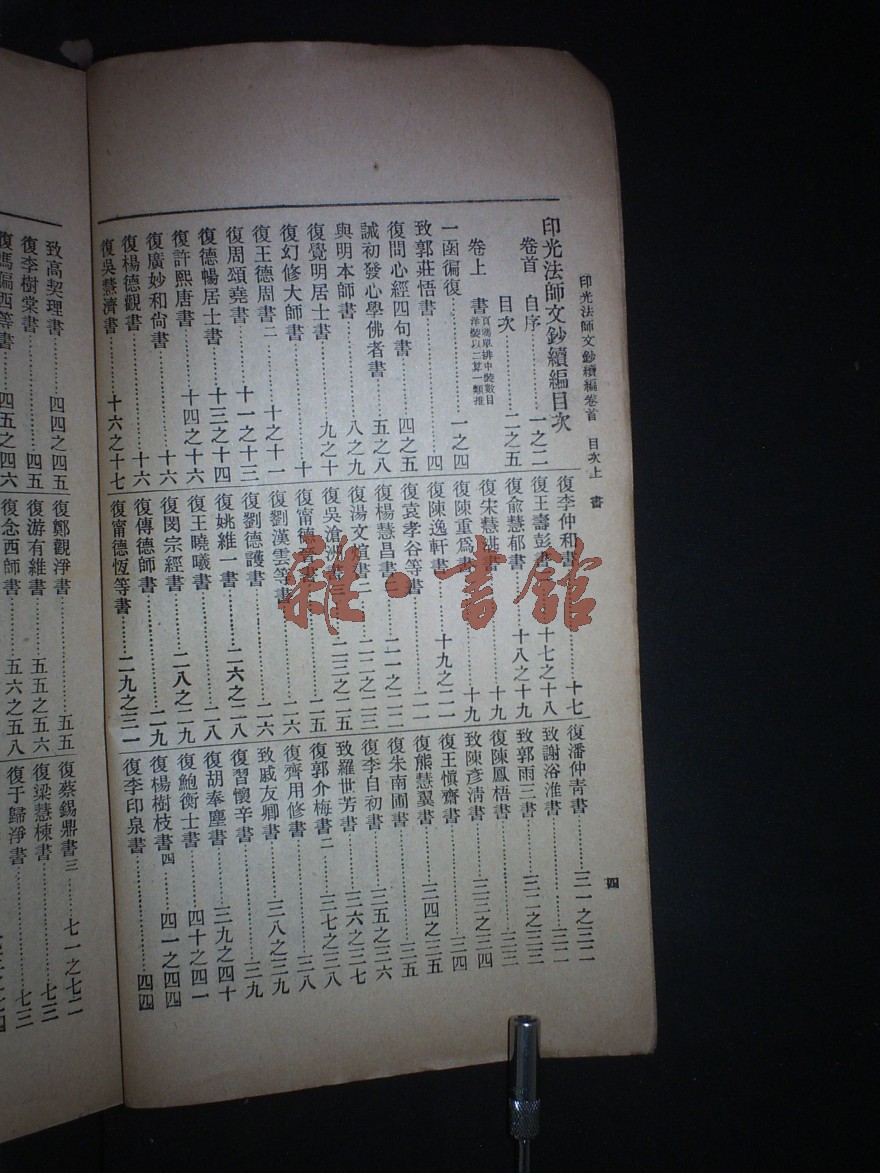 印光法師文鈔續編卷首　目次上　書
四
印光法師文鈔續編目次
卷首　自序……一之二
目次……二之五
卷上　書　頁碼單排中裝數目洋裝以二算一類推
一函徧復……一之四
致郭莊悟書……四
復問心經四句書……四之五
誡初發心學佛者書……五之八
與明本師書……八之九
復覺明居士書……九之十
復幻修大師書……十
復王德周書二……十之十一
復周頌堯書……十一之十三
復德暢居士書……十三之十四
復許熙唐書……十四之十六
復廣妙和尙書……十六
復楊德觀書……十六
復吳慧濟書……十六之十七
復李仲和書……十七
復王壽彭書……十七之十八
復俞慧郁書……十八之十九
復宋慧湛書……十九
復陳重爲書……十九
復陳逸軒書……十九之二一
復袁孝谷等書……二一
復楊慧昌書……二一之二二
復湯文煊書二……二二之二三
復吳滄洲書三……二三之二五
復甯德晉書……二五
復劉漢雲等書……二六
復劉德護書……二六
復姚維一書……二六之二八
復王曉曦書……二八
復閔宗經書……二八之二九
復傳德師書……二九
復甯德恆等書……二九之三一
復潘仲青書……三一之三二
致謝浴淮書……三二
致郭雨三書……三二之三三
復陳鳳梧書……三三
致陳彥清書……三三之三四
復王愼齋書……三四
復熊慧翼書……三四之三五
復朱南圃書……三五
復李自初書……三五之三六
致羅世芳書……三六之三七
復郭介梅書二……三七之三八
復齊用修書……三八
致戚友卿書……三八之三九
復習懷辛書……三九
復胡奉塵書……三九之四十
復鮑衡士書……四十之四一
復楊樹枝書四……四一之四四
復李印泉書……四四
致高契理書……四四之四五
復李樹棠書……四五
復馮偏西等書……四五之四六
復鄭觀淨書……五五
復游有維書……五五之五六
復念西師書……五六之五八
復蔡錫鼎書三……七一之七二
復梁慧棟書……七三
復于歸淨書……七三
雜·書館